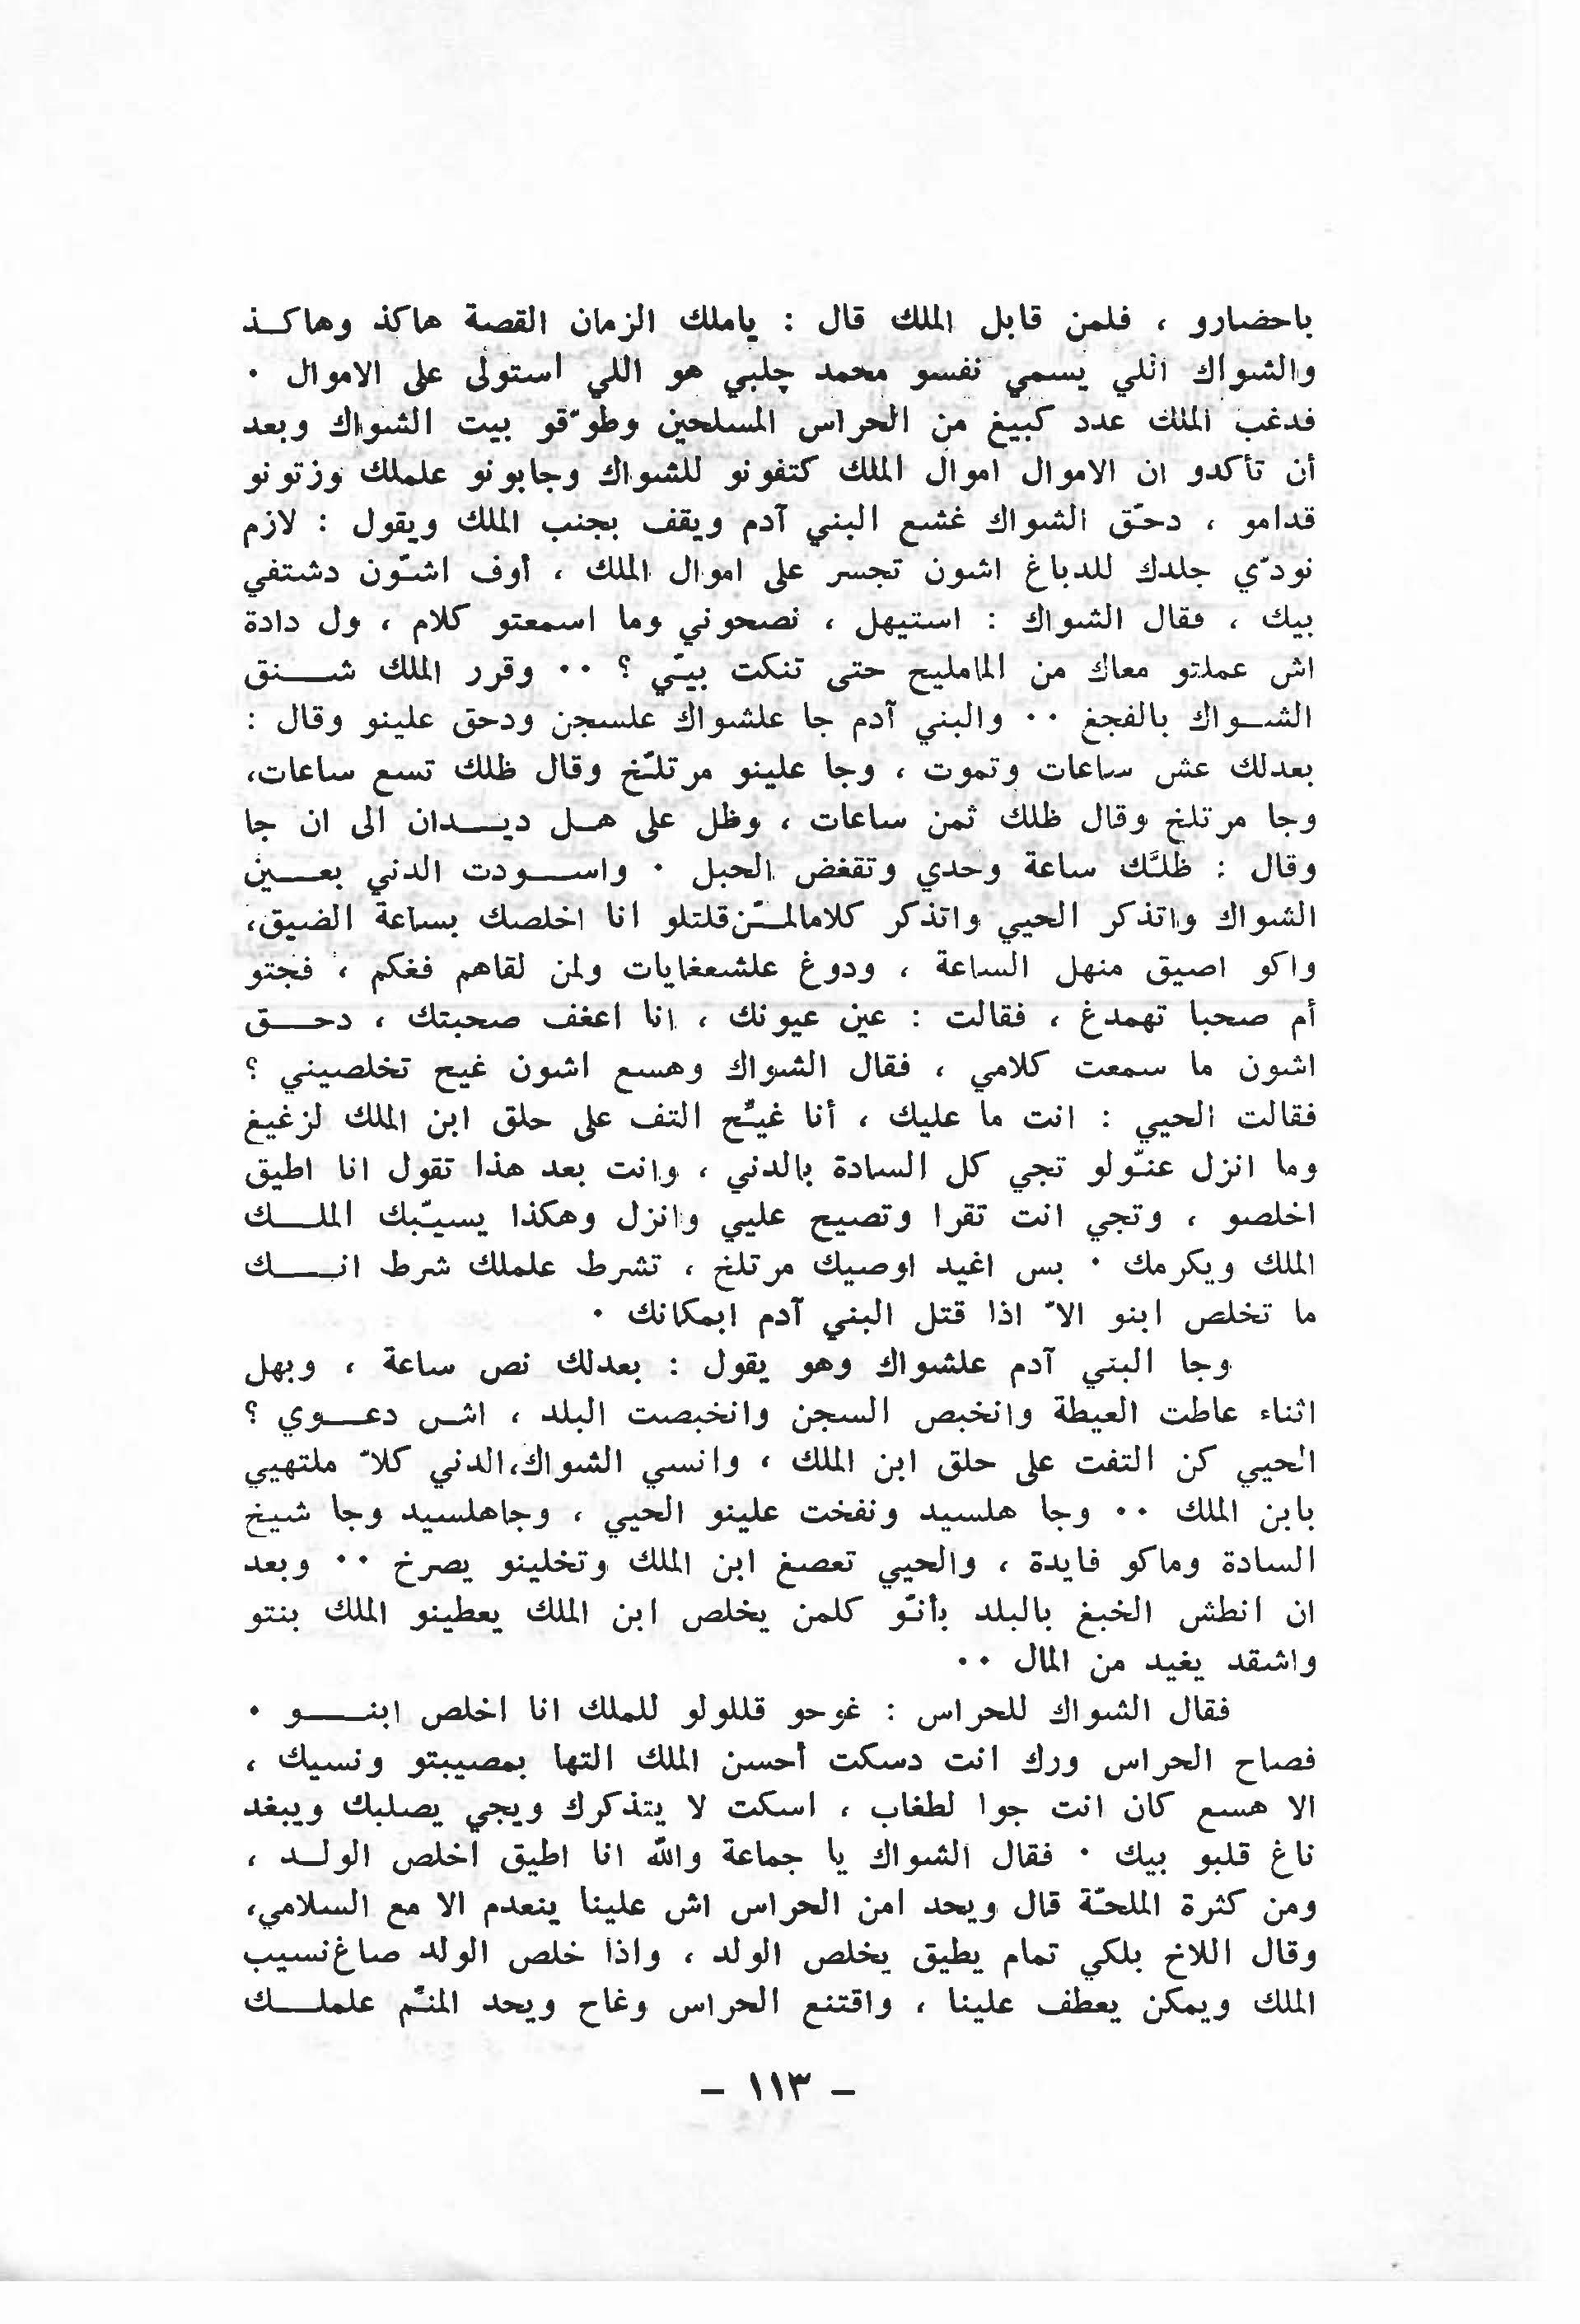 باحضارو ، فلمن قابل الملك قال : ياملك الزمان القصة هاكذ وهاكـذ
والشواك اللي يسمي نفسو محمد چلبي هو اللي استولى على الاموال ٠
فدغب الملك عدد كبيغ من الحراس المسلحين وطوّقو بيت الشواك وبعد
أن تأكدو ان الاموال اموال الملك كتفونو للشواك وجابونو علملك وزتونو
قدامو ، دحّق الشواك غشع البني آدم ويقف بجنب الملك ويقول : لازم
نودّي جلدك للدباغ اشون تجسر على اموال الملك ، أوف اشّون دشتفي
بيك ، فقال الشواك : استيهل ، نصحوني وما اسمعتو كلام ، ول دادة
اش عملتو معاك من المامليح حتى تنكت بيّي ؟ ٠٠ وقرر الملك شـــنق
الشـواك بالفجغ ٠٠ والبني آدم جا علشواك علسجن ودحق علينو وقال :
بعدلك عش ساعات وتموت ، وجا علينو مرتلّخ وقال ظلك تسع ساعات،
وجا مرتلخ وقال ظلك ثمن ساعات ، وظل على هـل ديـدان الى ان جا
وقال : ظلّك ساعة وحدي وتقغض الحبل ٠ واسـودت الدني بعـين
الشواك واتذكر الحيي واتذكر كلامالمـّن قلتلو انا اخلصك بساعة الضيق،
واكو اصيق منهل الساعة ، ودوغ علشعغايات ولمن لقاهم فغكم ، فجتو
أم صحبا تهمدغ ، فقالت : عين عيونك ، انا اعغف صحبتك ، دحـق
اشون ما سمعت كلامي ، فقال الشواك وهسع اشون غيح تخلصيني ؟
فقالت الحيي : انت ما عليك ، أنا غيّح التف على حلق ابن الملك لزغيغ
وما انزل عنّولو تجي كل السادة بالدني ، وانت بعد هذا تقول انا اطيق
اخلصو ، وتجي انت تقرا وتصيح عليي وانزل وهكذا يسيّبك الملـك
الملك ويكرمك ٠ بس اغيد اوصيك مرتلخ ، تشرط علملك شرط انـــك
ما تخلص ابنو الاّ اذا قتل البني آدم ابمكانك ٠
وجا البني آدم علشواك وهو يقول : بعدلك نص ساعة ، وبهل
اثناء عاطت العيطة وانخبص السجن وانخبصت البلد ، اش دعـوي ؟
الحيي كن التفت على حلق ابن الملك ، وانسي الشواك،الدني كلاّ ملتهيي
بابن الملك ٠٠ وجا هلسيد ونفخت علينو الحيي ، وجاهلسيد وجا شيخ
السادة وماكو فايدة ، والحيي تعصغ ابن الملك وتخلينو يصرخ ٠٠ وبعد
ان انطش الخبغ بالبلد بأنّو كلمن يخلص ابن الملك يعطينو الملك بنتو
واشقد يغيد من المال ٠٠
فقال الشواك للحراس : غوحو قللولو للملك انا اخلص ابنـــو ٠
فصاح الحراس ورك انت دسكت أحسن الملك التها بمصيبتو ونسيك ،
الا هسع كان انت جوا لطغاب ، اسكت لا يتذكرك ويجي يصلبك ويبغد
ناغ قلبو بيك ٠ فقال الشواك يا جماعة والله انا اطيق أخلص الولـد ،
ومن كثرة الملحّة قال ويحد امن الحراس اش علينا ينعدم الا مع السلامي،
وقال اللاخ بلكي تمام يطيق يخلص الولد ، واذا خلص الولد صاغ نسيب
الملك ويمكن يعطف علينا ، واقتنع الحراس وغاح ويحد المنّم علملــك
– ١١٣ –